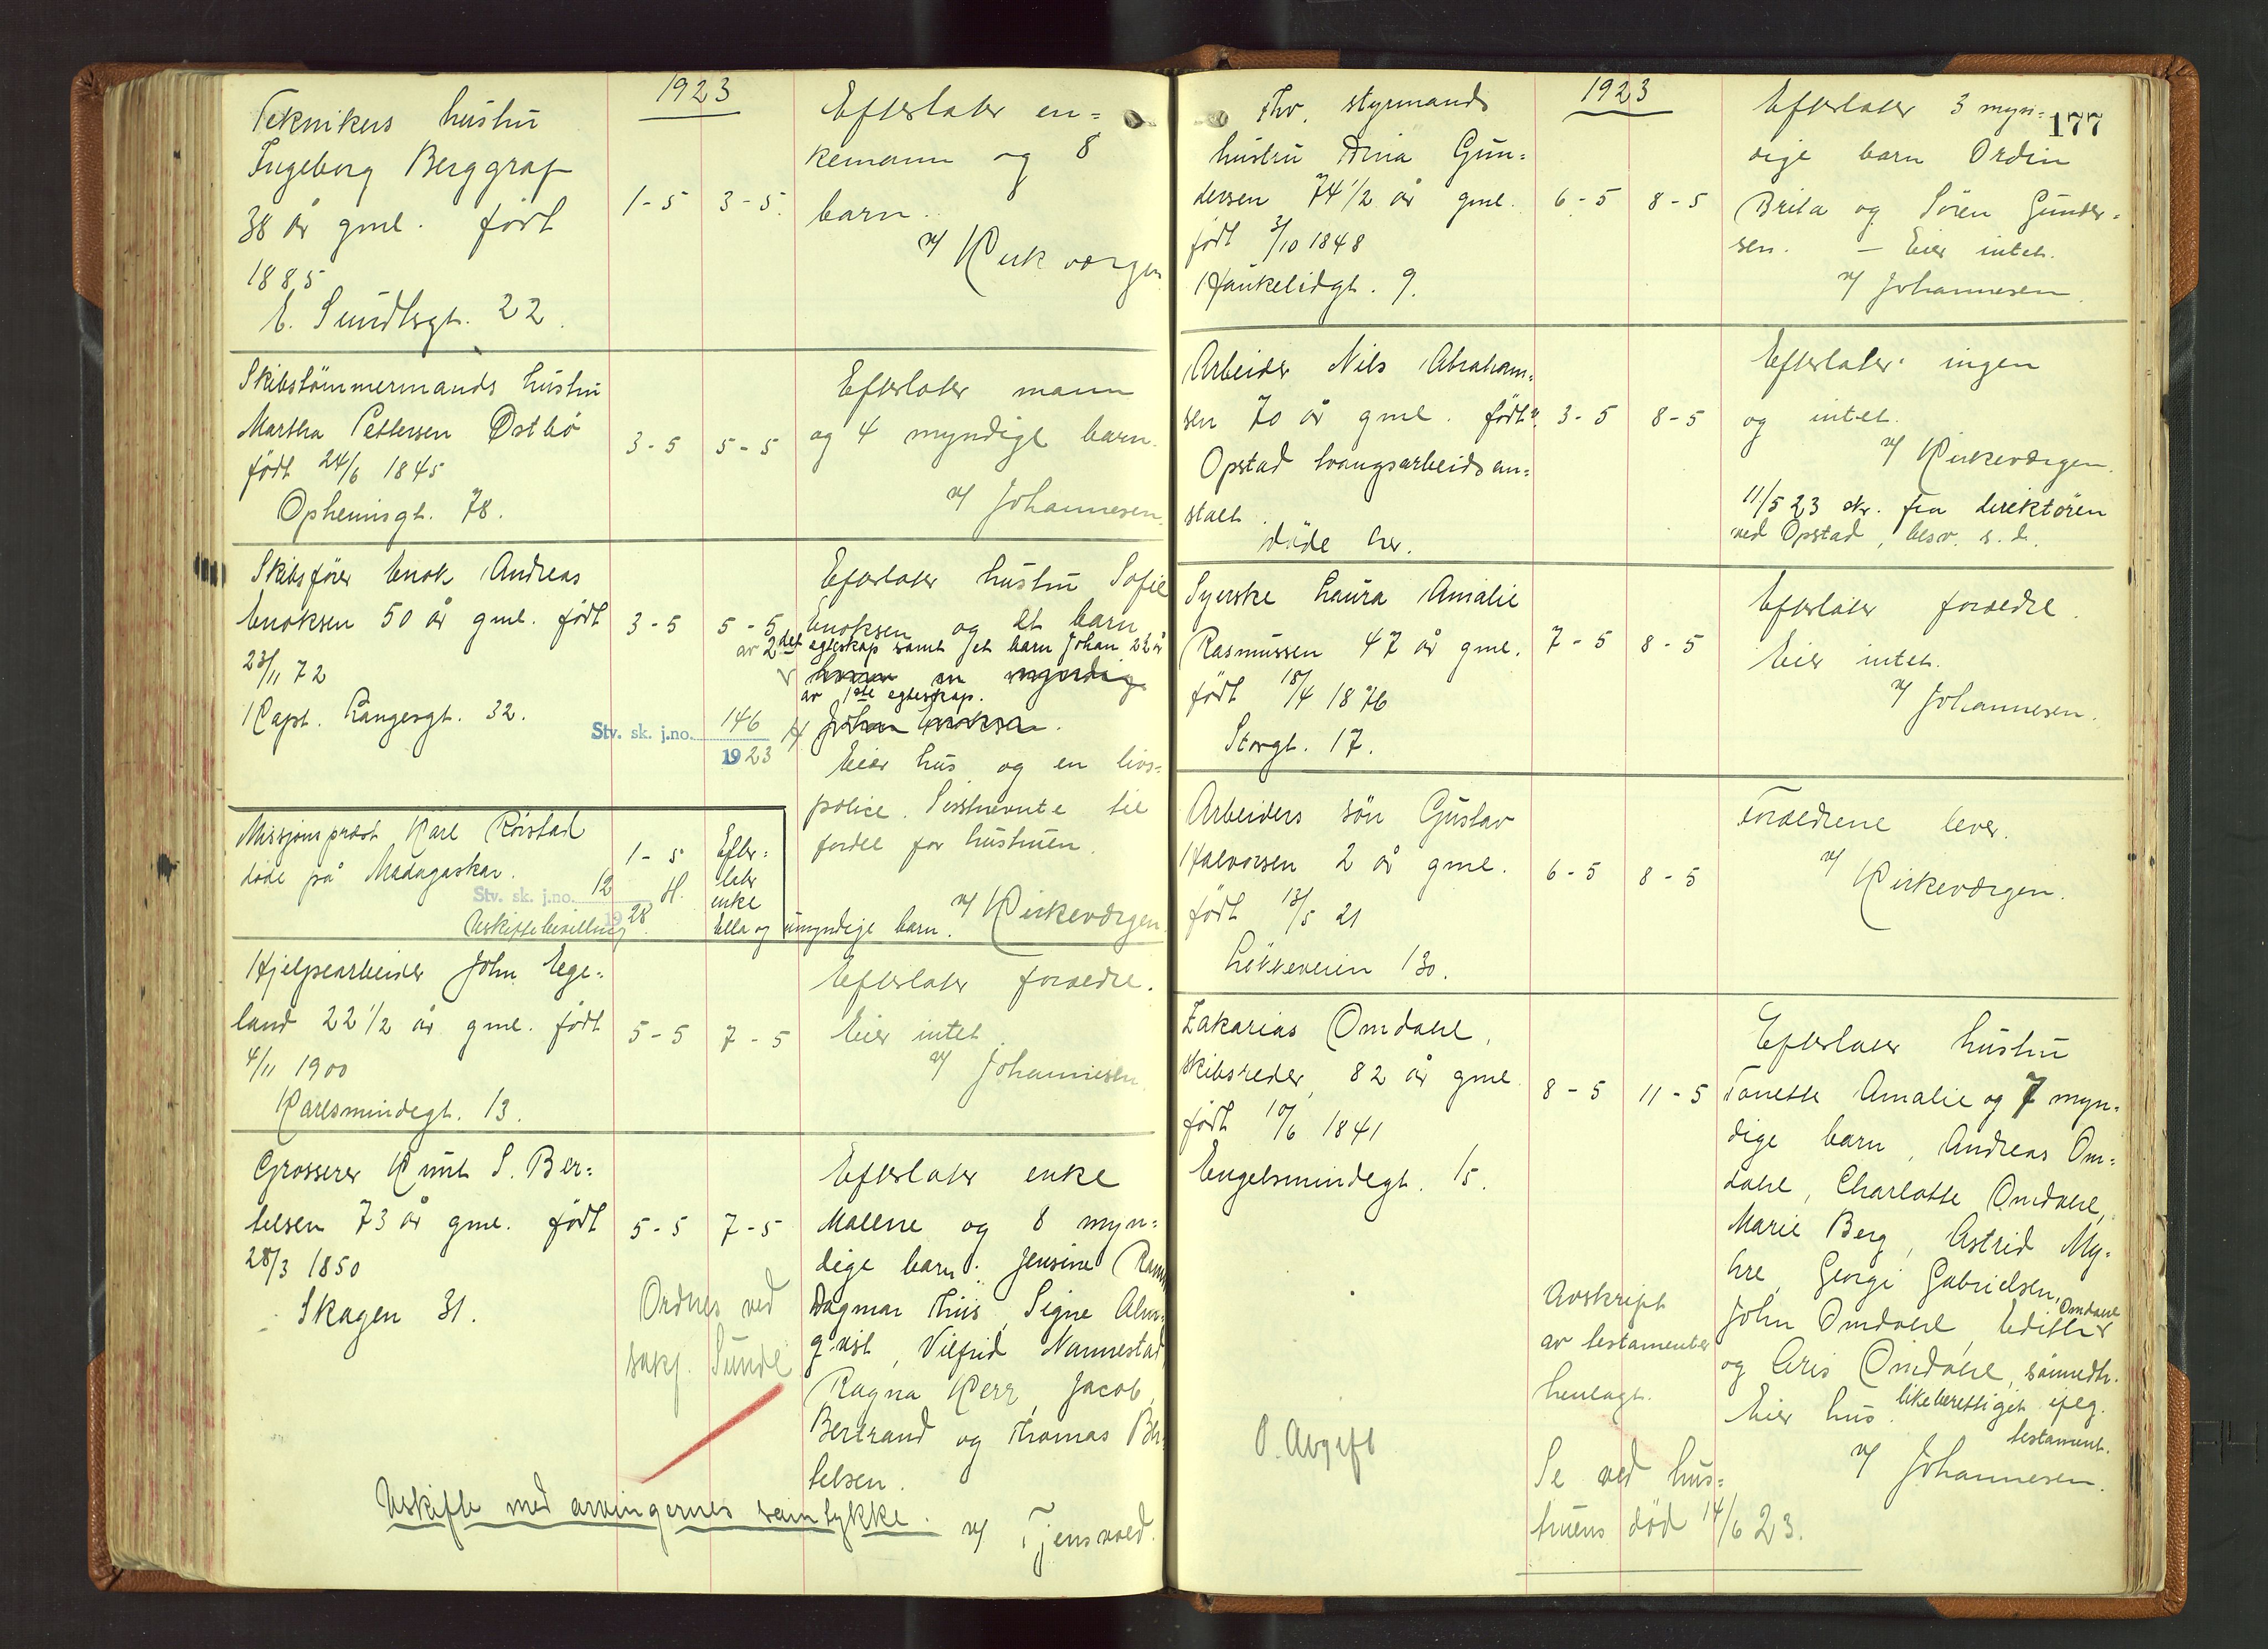 1923
Teknikers hustru
Ingeborg Berggraf
38 år gml. født
1885
E. Sundtsgt. 22.
1-5 3-5.
Efterlater en=
kemann og 8
barn.
v/ Kirkevergen
Skibstömmermands hustru
Martha Pettersen Østbö
født 24/6 1845
Opheimsgt. 78.
3-5 5-5
Efterlater mann
og 4 myndige barn.
v/ Johannesen.
Skibsfører Enok Andreas
Enoksen 50 år gml. født
23/11 72
Kapt. Langesgt. 32.
3-5 5-5
Stv. sk. j.no. 146
1923
Efterlater hustru Sofie
Enoksen og et barn
av 2det egteskap samt 1 et barn Johan 22 år
en myndig
av 1ste egteskap.
Johan Enoksen.
Eier hus og en livs=
police. Sisstnevnte til
fordel for hustruen.
v/ Kirkevergen
Missjonsprest Karl Röistad
døde på Madagaskar.
Stv. sk. j.no. 12
1928.
Uskiftebevilling
1-5
H.
Efter=
later
enke
Ella og umyndige barn.
Hjelpearbeider John Ege=
land 22 1/2 år gml. født
4/11 1900
Karlsmindegt. 13.
5-5 7-5
Efterlater foraeldre.
Eier intet.
v/ Johannesen.
Grosserer Knut S. Ber=
telsen 73 år gml. født
28/3 1850
Skagen 31.
5-5 7-5
Ordnes ved
sakf. Sunde
Efterlater enke
Malene og 8 myn=
dige barn: Jensine
Dagmar Thiis, Signe Alm=
qvist, Vilfrid Nannestad,
Ragna Kerr, Jacob,
Bertrand og Thomas Ber=
telsen.
Uskifte med arvingernes samtykke.
v/ Tjensvold.
177
1923
Fhv. styrmands
hustru Dina Gun=
dersen 74 1/2 år gml.
født 3/10 1848
Haukelidgt. 9.
6-5 8-5
Efterlater 3 myn=
dige barn Ordin
Brita og Sören Gunder=
sen. - Eier intet.
v/ Johannesen.
Arbeider Nils Abraham=
sen 70 år gml. født
Opstad tvangsarbeidsan=
stalt.
döde her.
3-5 8-5
Efterlater ingen
og intet.
v/ Kirkevergen.
11/5 23 skr. fra direktören
ved Opstad, besv. s. d.
Syerske Laura Amalie
Rasmussen 47 år gml.
født 18/4 1876
Storgt. 17.
7-5 8-5
Efterlater foraeldre.
Eier intet.
v/ Johannesen.
Arbeiders sön Gustav
Halvorsen 2 år gml.
født 13/5 21
Lökkeveien 130.
6-5 8-5
Foraeldrene lever.
v/ Kirkevergen.
Zakarias Omdahl,
skibsreder, 82 år gml.
født 10/6 1841
Engelsmindegt. 15.
8-5 11-5
Efterlater hustru
Tonette Amalie og 7 myn=
dige barn, Andreas Om=
dahl, Charlotte Omdahl,
Marie Berg, Astrid My=
hre, Georgi Gabrielsen,
John Omdahl, Edith Omdahl
og Cris Omdahl,
likeberettiget ifølg.
testament.
Eier hus.
v/ Johannesen.
Avskript
av testamenter
henlagt.
O. Avgift
Se ved hus=
truens död 14/6 23.